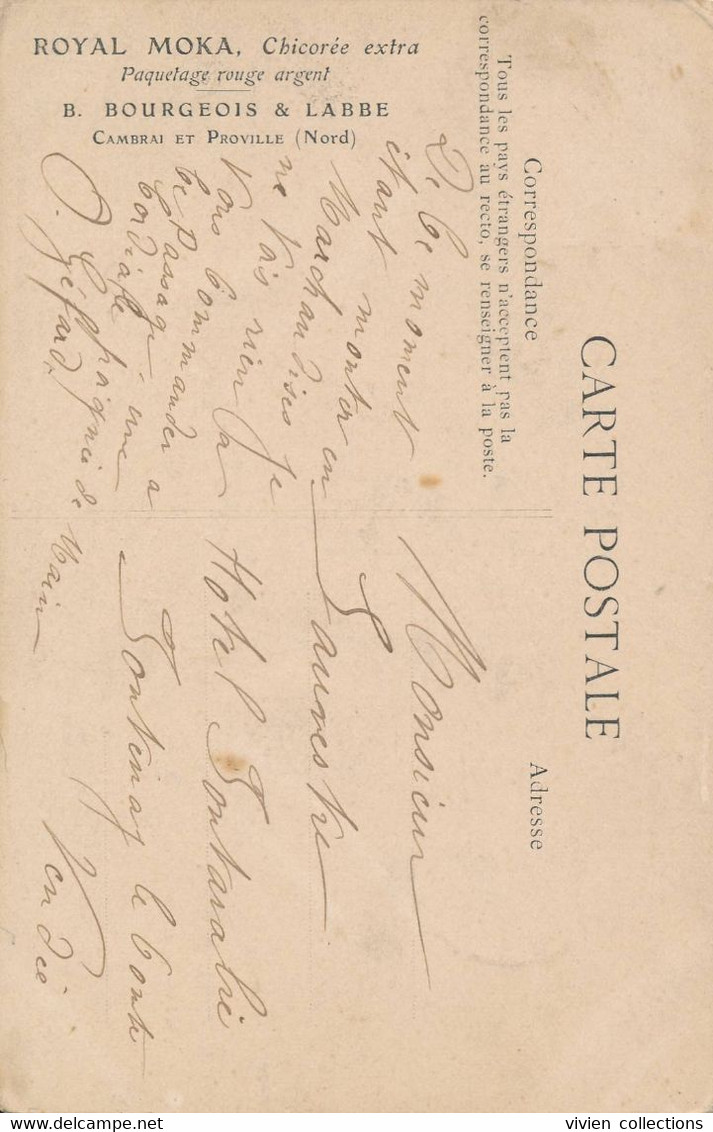 ROYAL MOKA, Chicorée extra
Paquetage rouge argent
B. BOURGEOIS & LABBE
CAMBRAI ET PROVILLE (Nord)
CARTE POSTALE
Correspondance
Tous les pays étrangers n'acceptent pas la
correspondance au recto, se renseigner à la poste.
Adresse
De Ce moment
étant monter en
Marchandises je
ne Vois rien a
Vous Commander
le passage a
une
Cordiale
poignée de Main
Monsieur
Sauvestre
Hotel Fontarabie
Fontenay le Comte
Vendée
vivien collections